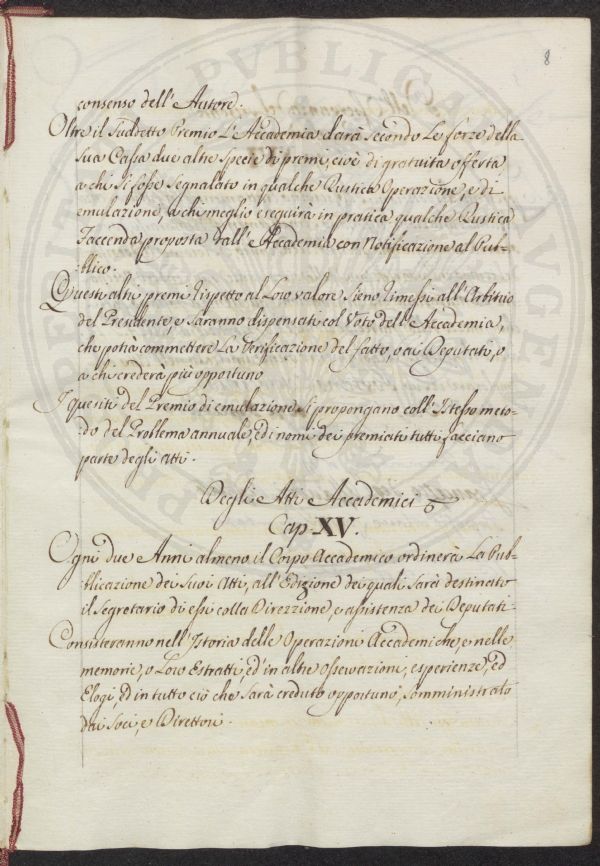 8
consenso dell' Autore.
Oltre il suddetto Premio L'Accademia darà secondo Le forze della
sua Cassa due altre specie di premi, cioè di gratuita offerta
a chi si fosse segnalato in qualche Rustica Operazione, e di
emulazione, a chi meglio eseguirà in pratica qualche Rustica
Faccenda proposta dall'Accademia con Notificazione al Pub-
blico.
Questi altri premi rispetto al Loro valore sieno rimessi all'Arbitrio
del Presidente, e saranno dispensati col Voto dell'Accademia,
che potrà commettere La Verificazione del fatto, o ai Deputati, o
a chi crederà più opportuno
I quesiti del Premio di emulazione si propongano coll'Istesso meto-
do del Problema annuale, ed i nomi dei premiati tutti facciano
parte degli Atti.
Degli Atti Accademici
Cap. XV.
Ogni due Anni almeno il Corpo Accademico ordinerà La Pub-
blicazione dei suoi Atti, all'Edizione dei quali sarà destinato
il Segretario di essi colla Direzzione, e assistenza dei Deputati.
Consisteranno nell'Istoria delle Operazioni Accademiche, e nelle
memorie, o Loro Estratti, ed in altre osservazioni, esperienze, ed
Elogi, ed in tutto ciò che sarà creduto opportuno, somministrato
dai Soci, e Direttori.